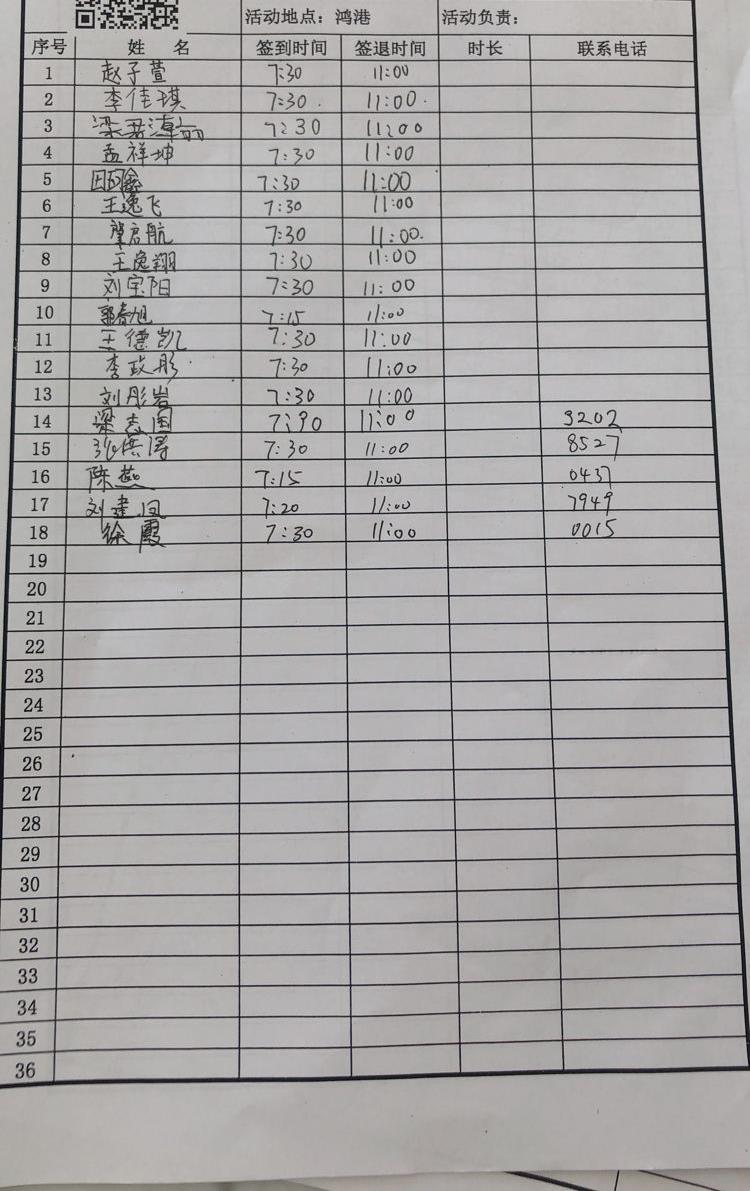 活动地点：鸿港 活动负责：
序号 姓 名 签到时间 签退时间 时长 联系电话
1 赵子萱 7:30 11:00
2 李佳琪 7:30 11:00
3 梁君 7:30 11:00
4 孟祥坤 7:30 11:00
5 7:30 11:00
6 王逸飞 7:30 11:00
7 启航 7:30 11:00
8 王逸翔 7:30 11:00
9 刘宝阳 7:30 11:00
10 郭春旭 7:15 11:00
11 王德凯 7:30 11:00
12 李政彤 7:30 11:00
13 刘彤岩 7:30 11:00
14 梁志国 11:00 3202
15 7:30 11:00 8527
16 陈燕 7:15 11:00 0437
17 刘建凤 7:20 11:00 7949
18 徐霞 7:30 11:00 0015
19
20
21
22
23
24
25
26
27
28
29
30
31
32
33
34
35
36